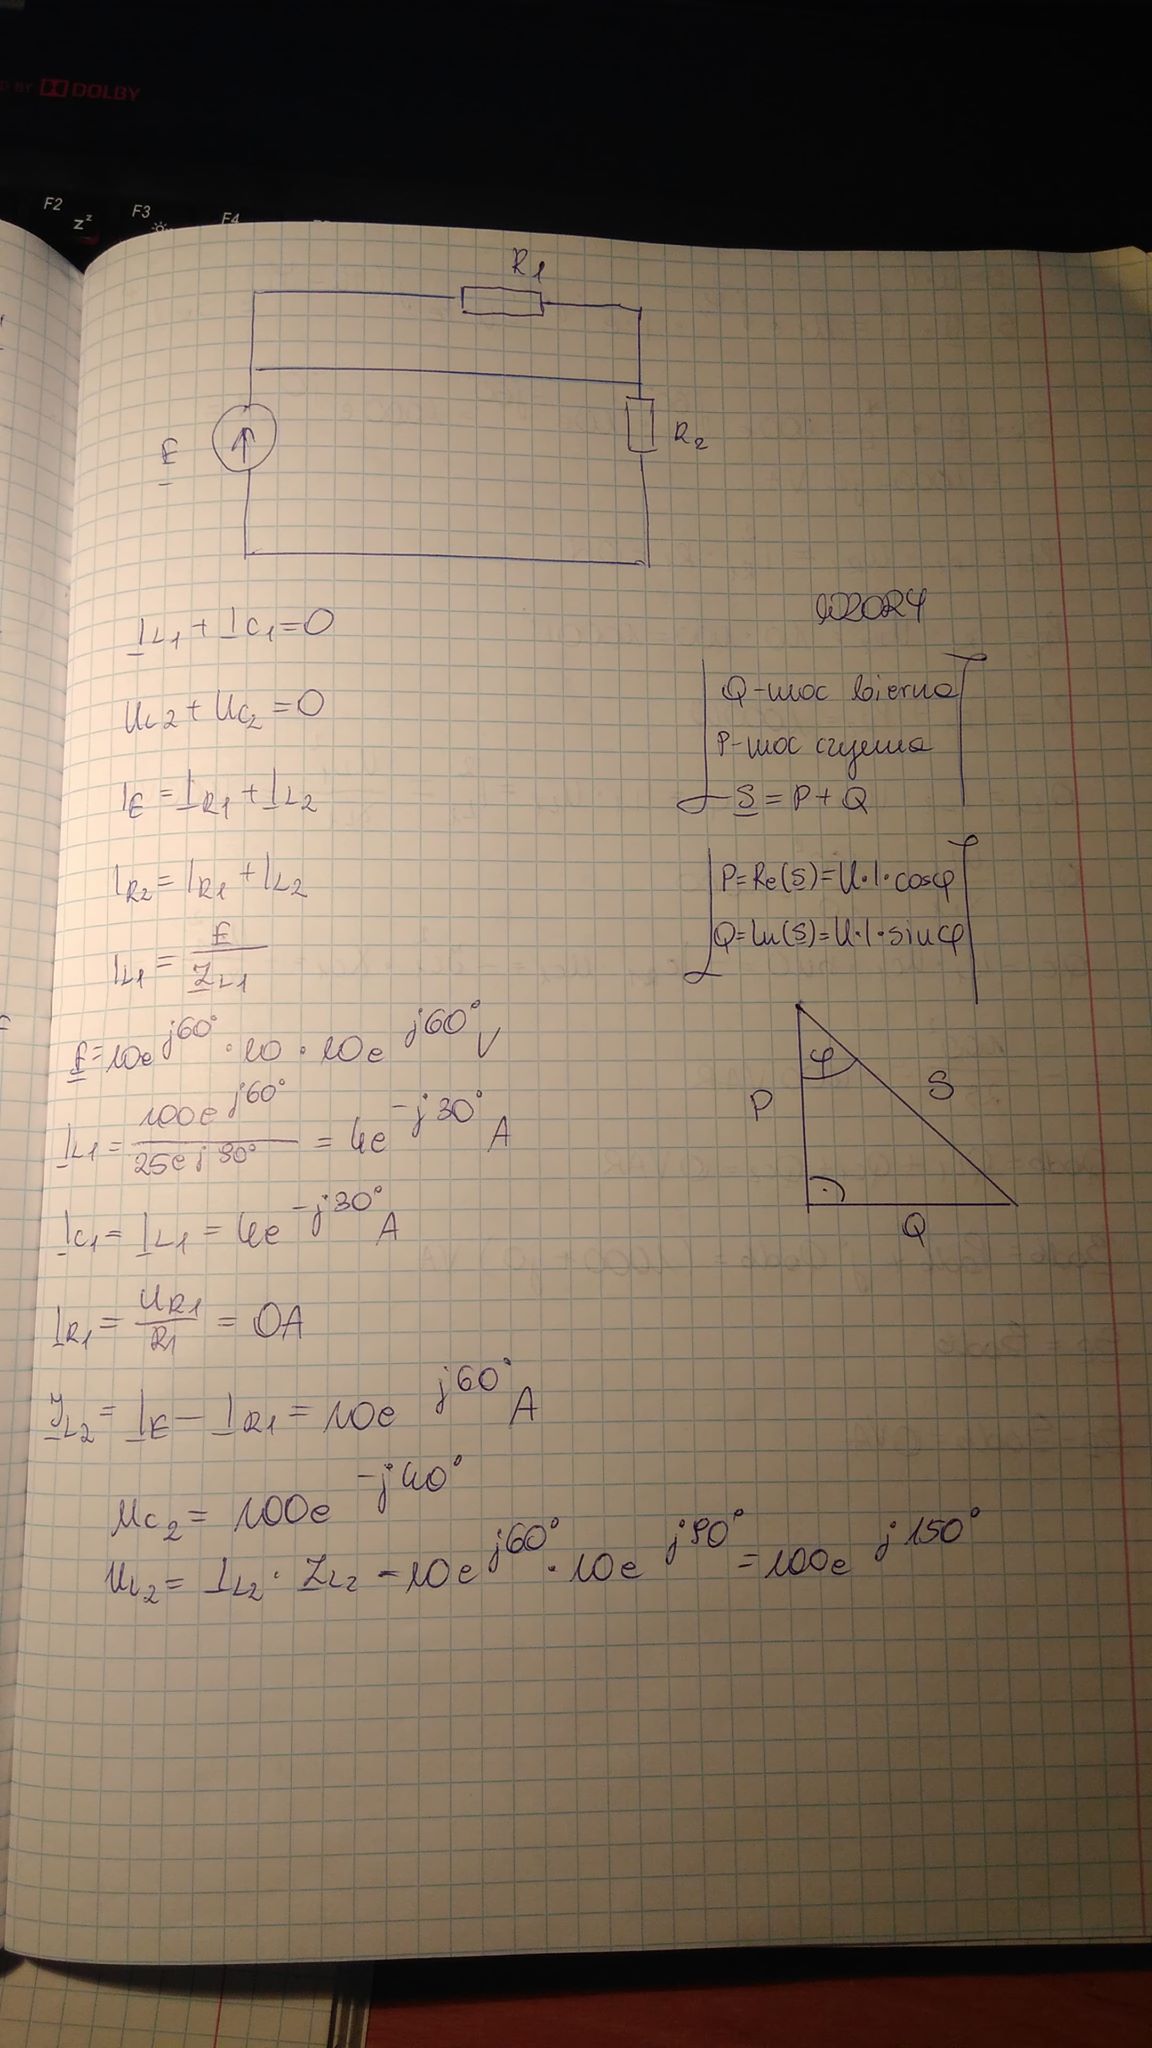 DOLBY
F2
F3
F4
zᶻ
R1
E
R2
I_L1 + I_C1 = 0
U_L2 + U_C2 = 0
I_E = I_R1 + I_L2
I_R2 = I_R1 + I_L2
I_L1 = E / Z_L1
E = 10e^j60° · 10 · 10e^j60° V
I_L1 = 100e^j60° / 25e^j90° = 4e^-j30° A
I_C1 = I_L1 = 4e^-j30° A
I_R1 = U_R1 / R1 = 0A
I_L2 = I_E - I_R1 = 10e^j60° A
U_C2 = 100e^-j40°
U_L2 = I_L2 · Z_L2 = 10e^j60° · 10e^j90° = 100e^j150°
Q-moc bierna
P-moc czynna
S = P + Q
P = Re(S) = U·I·cosφ
Q = Im(S) = U·I·sinφ
φ
P
S
Q